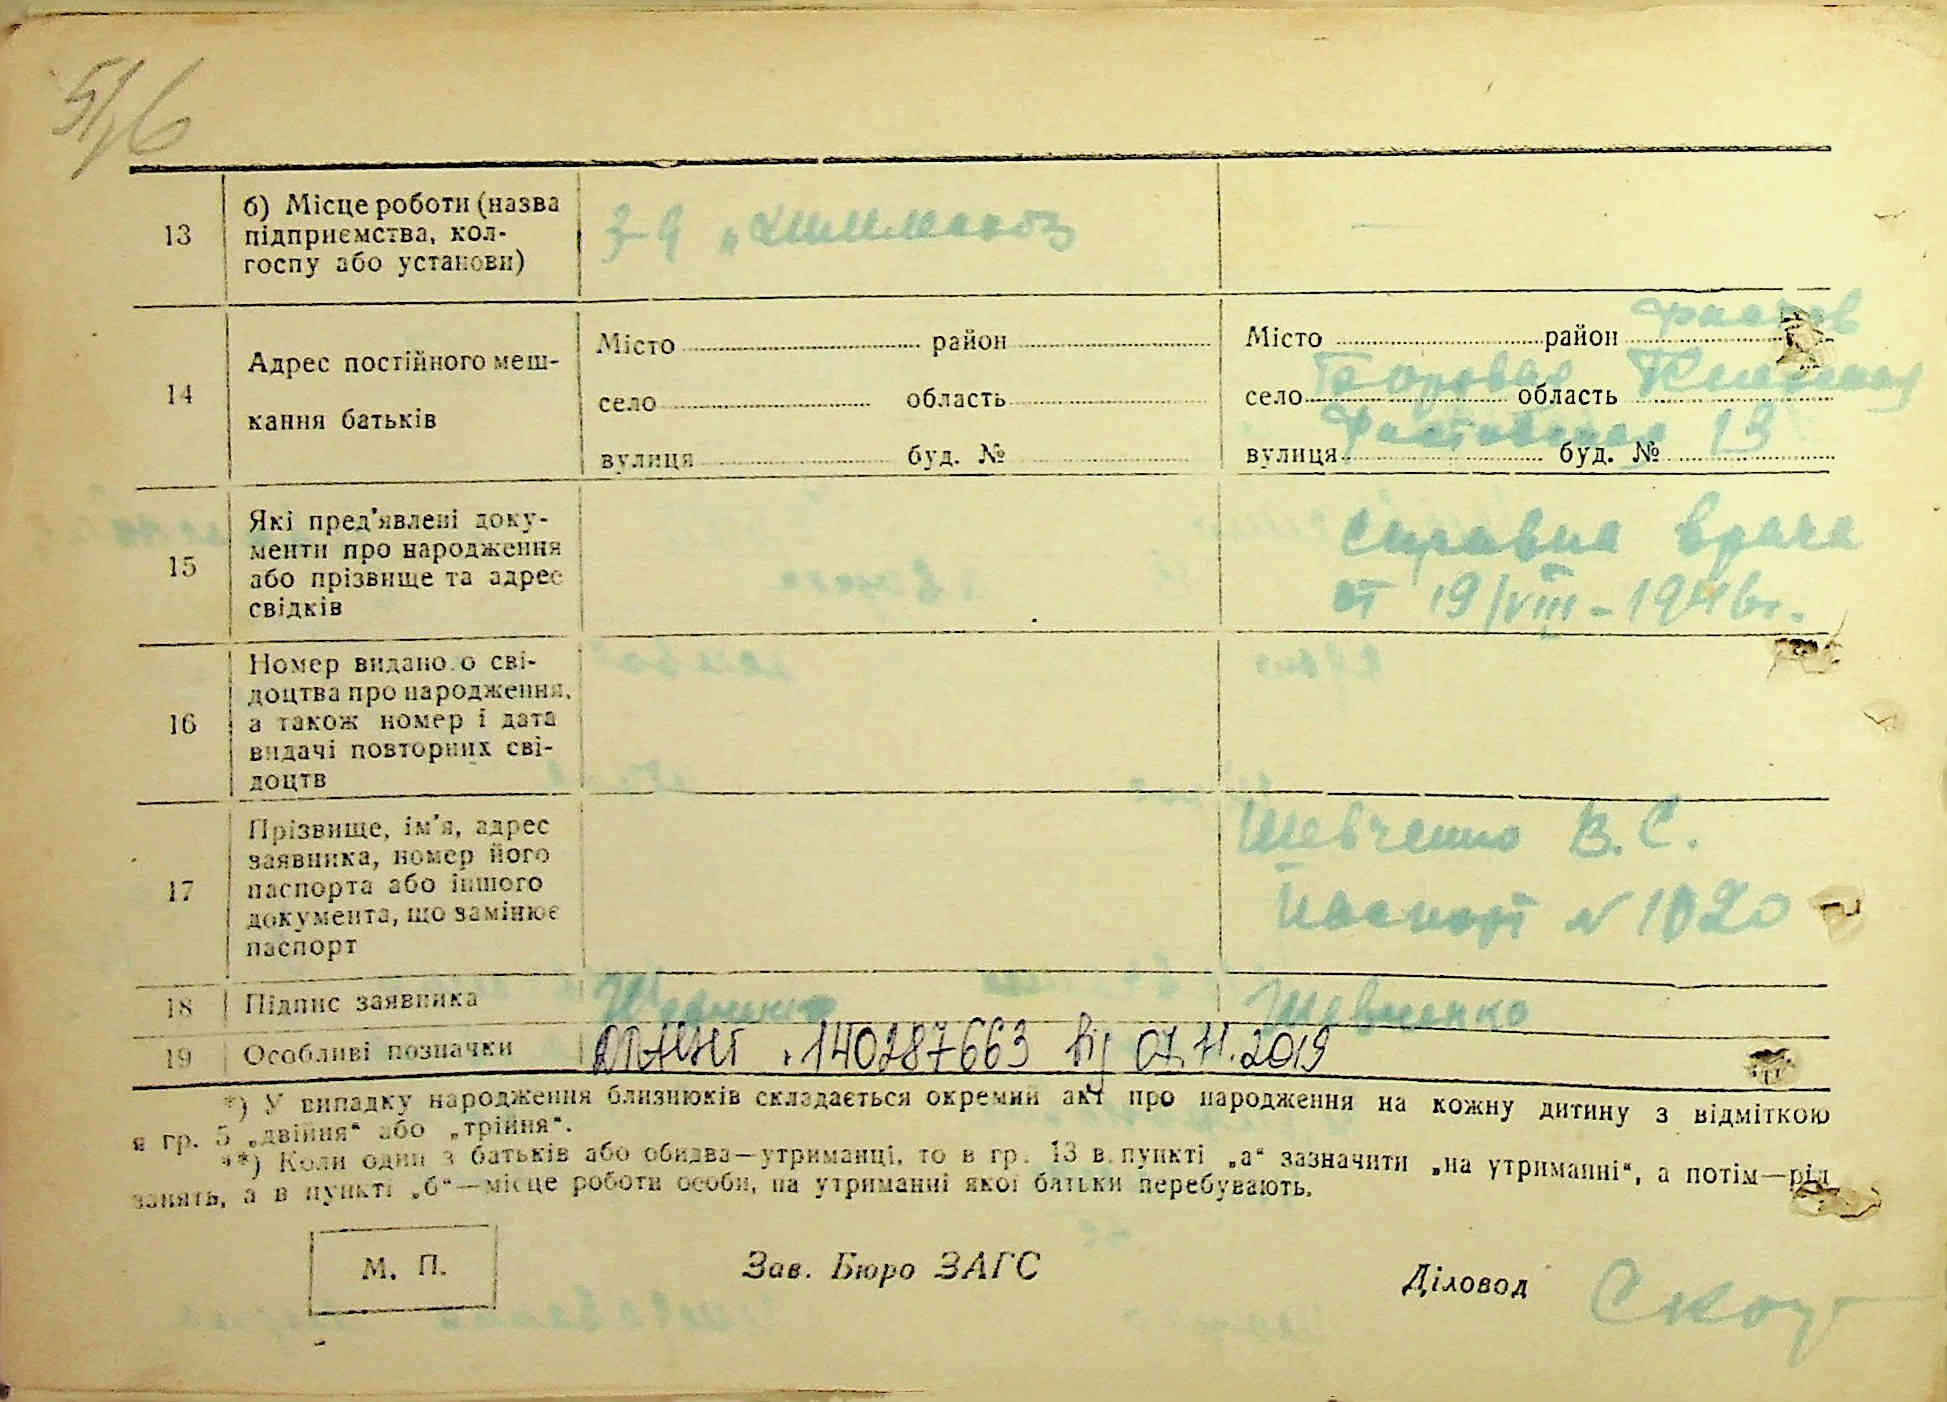 51/6
13
б) Місце роботи (назва
підприємства, кол-
госпу або установи)
З-д „
14
Адрес постійного меш-
кання батьків
Місто район
село область
вулиця буд. №
Місто район Фастов
село область Киевская
вулиця Фастовская буд. № 13
15
Які пред'явлені доку-
менти про народження
або прізвище та адрес
свідків
Справка врача
от 19/VIII - 1946 г.
16
Номер видано о сві-
доцтва про народження,
а також номер і дата
видачі повторних сві-
доцтв
17
Прізвище, ім'я, адрес
заявника, номер його
паспорта або іншого
документа, що замінює
паспорт
Шевченко В. С.
Паспорт № 1020
18
Підпис заявника
Шевченко
19
Особливі позначки
140287663 від 07.11.2019
*) У випадку народження близнюків складається окремий акт про народження на кожну дитину з відміткою
в гр. 5 „двійня“ або „трійня“.
**) Коли один з батьків або обидва—утриманці, то в гр. 13 в пункті „а“ зазначити „на утриманні“, а потім—рід
занять, а в пункті „б“—місце роботи особи, на утриманні якої батьки перебувають.
М. П.
Зав. Бюро ЗАГС
Діловод